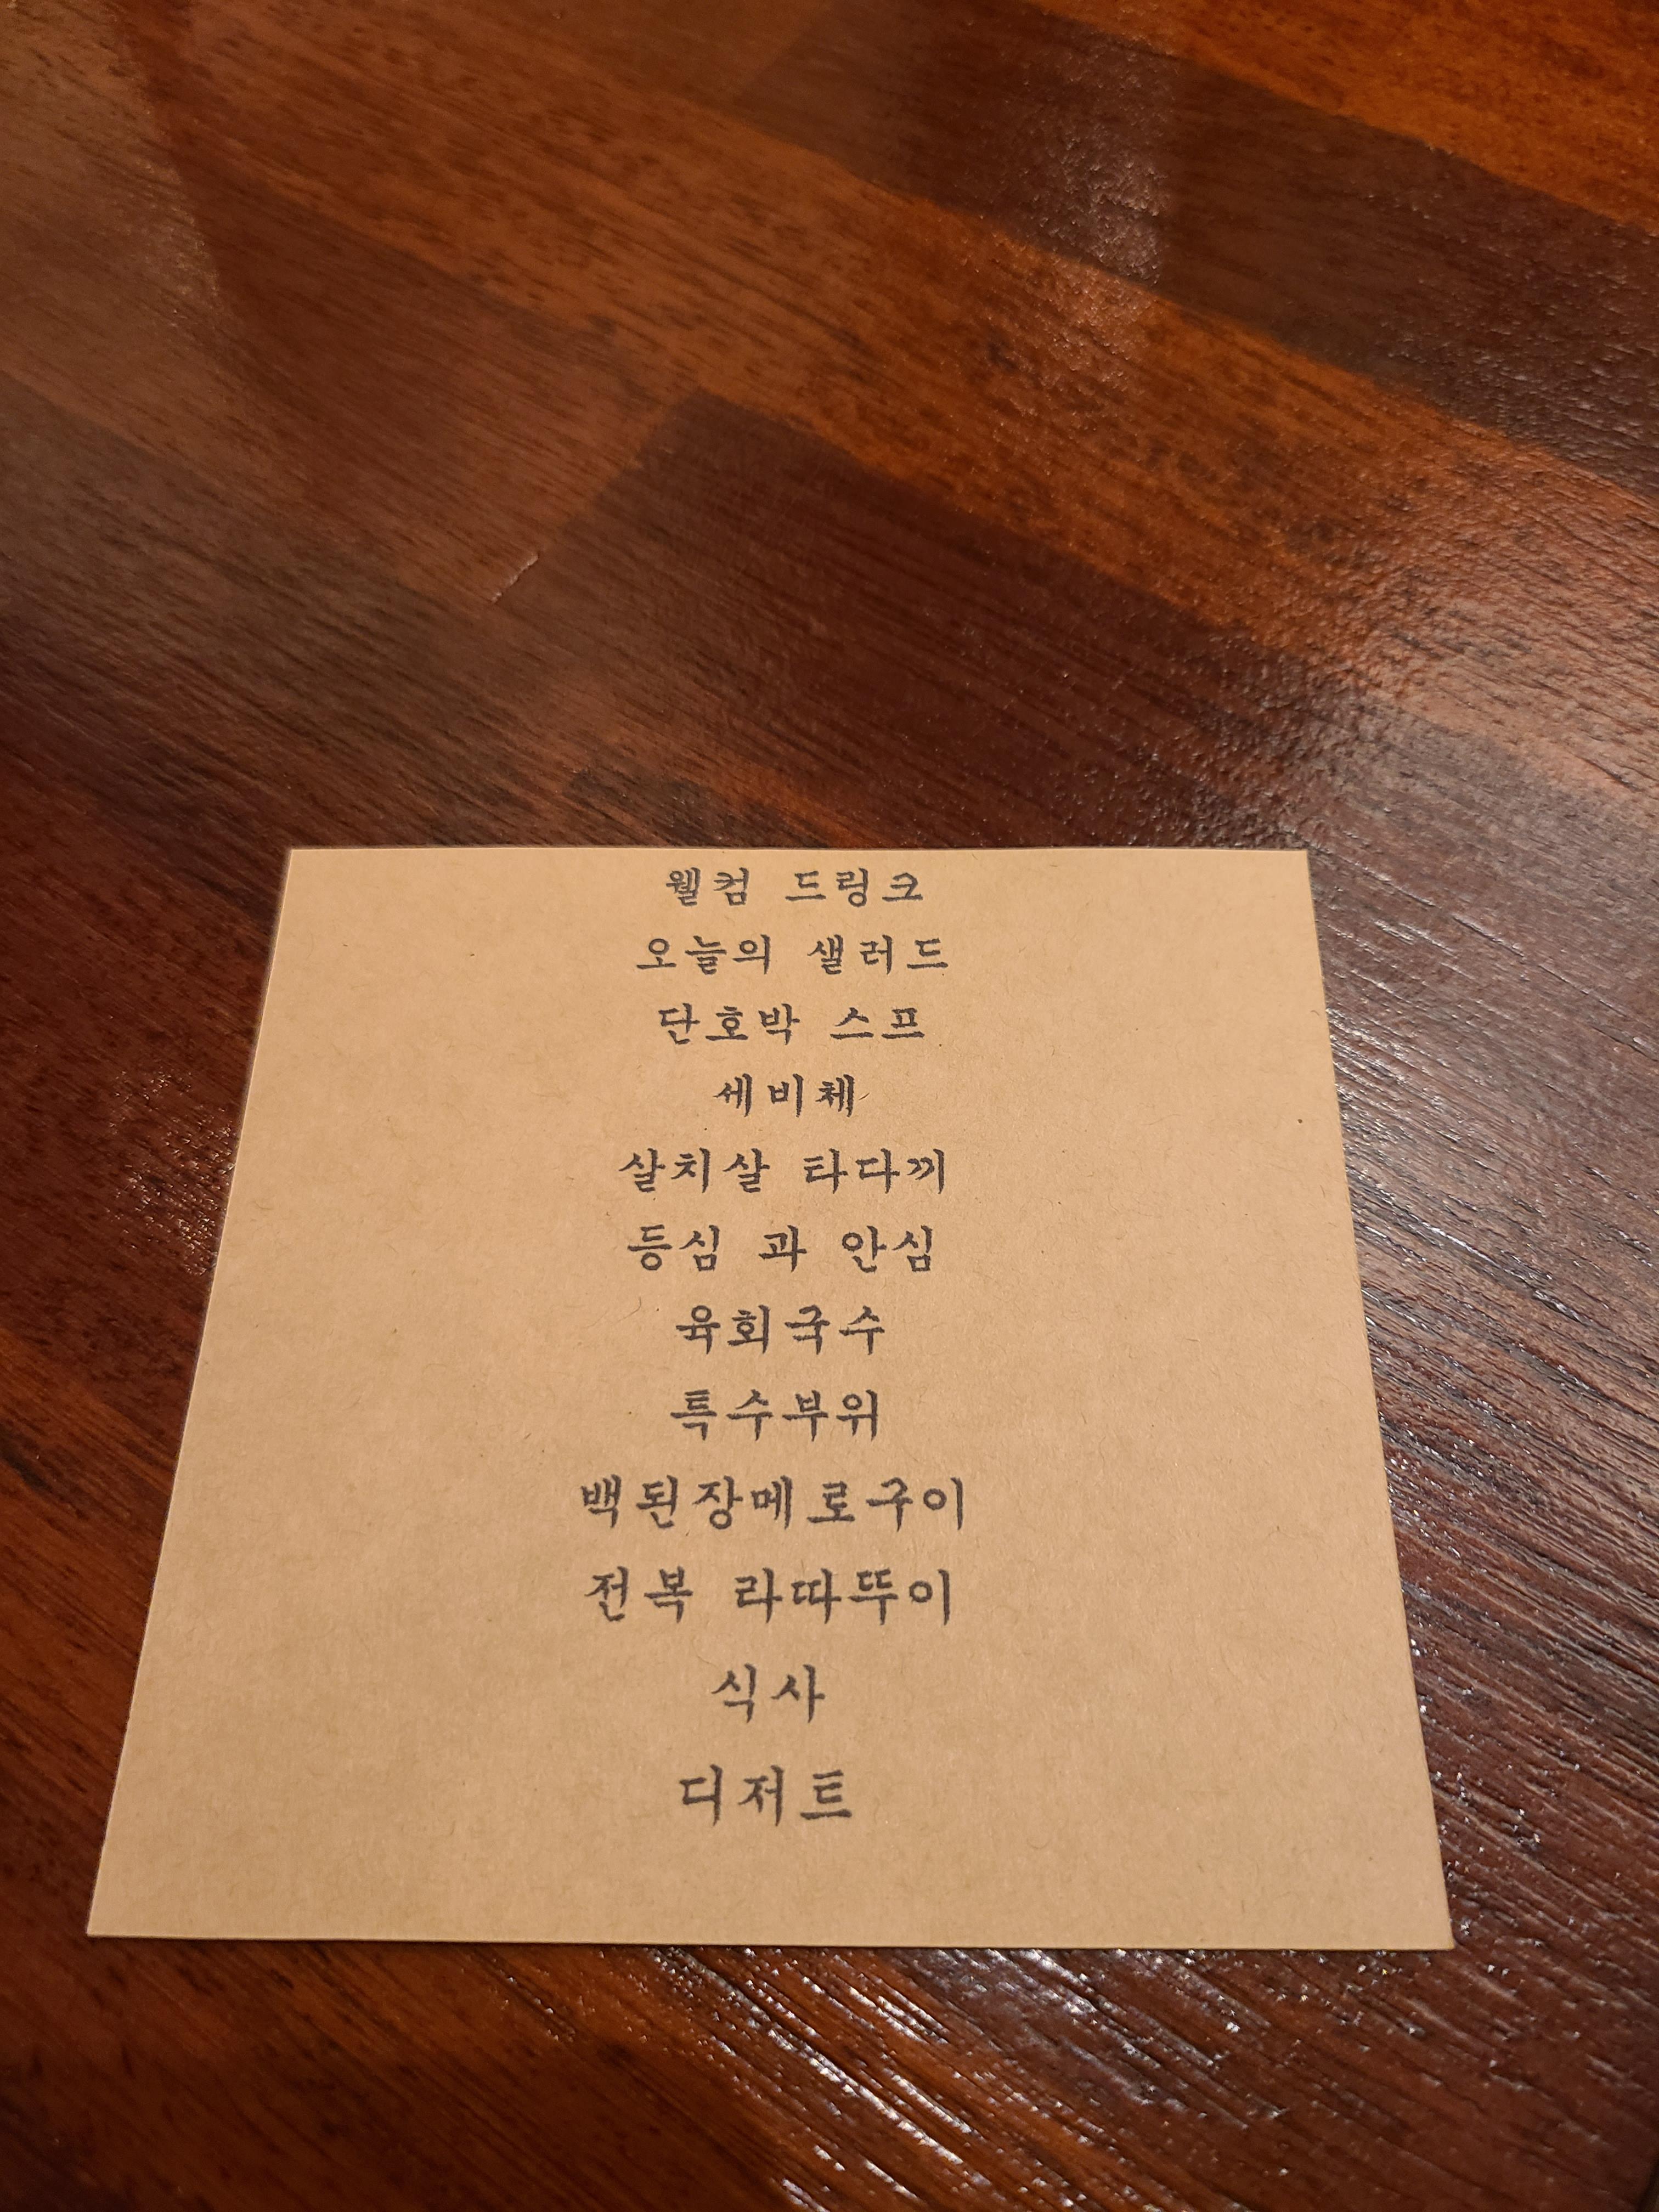 웰컴 드링크
오늘의 샐러드
단호박 스프
세비체
살치살 타다끼
등심 과 안심
육회국수
특수부위
백된장메로구이
전복 라따뚜이
식사
디저트